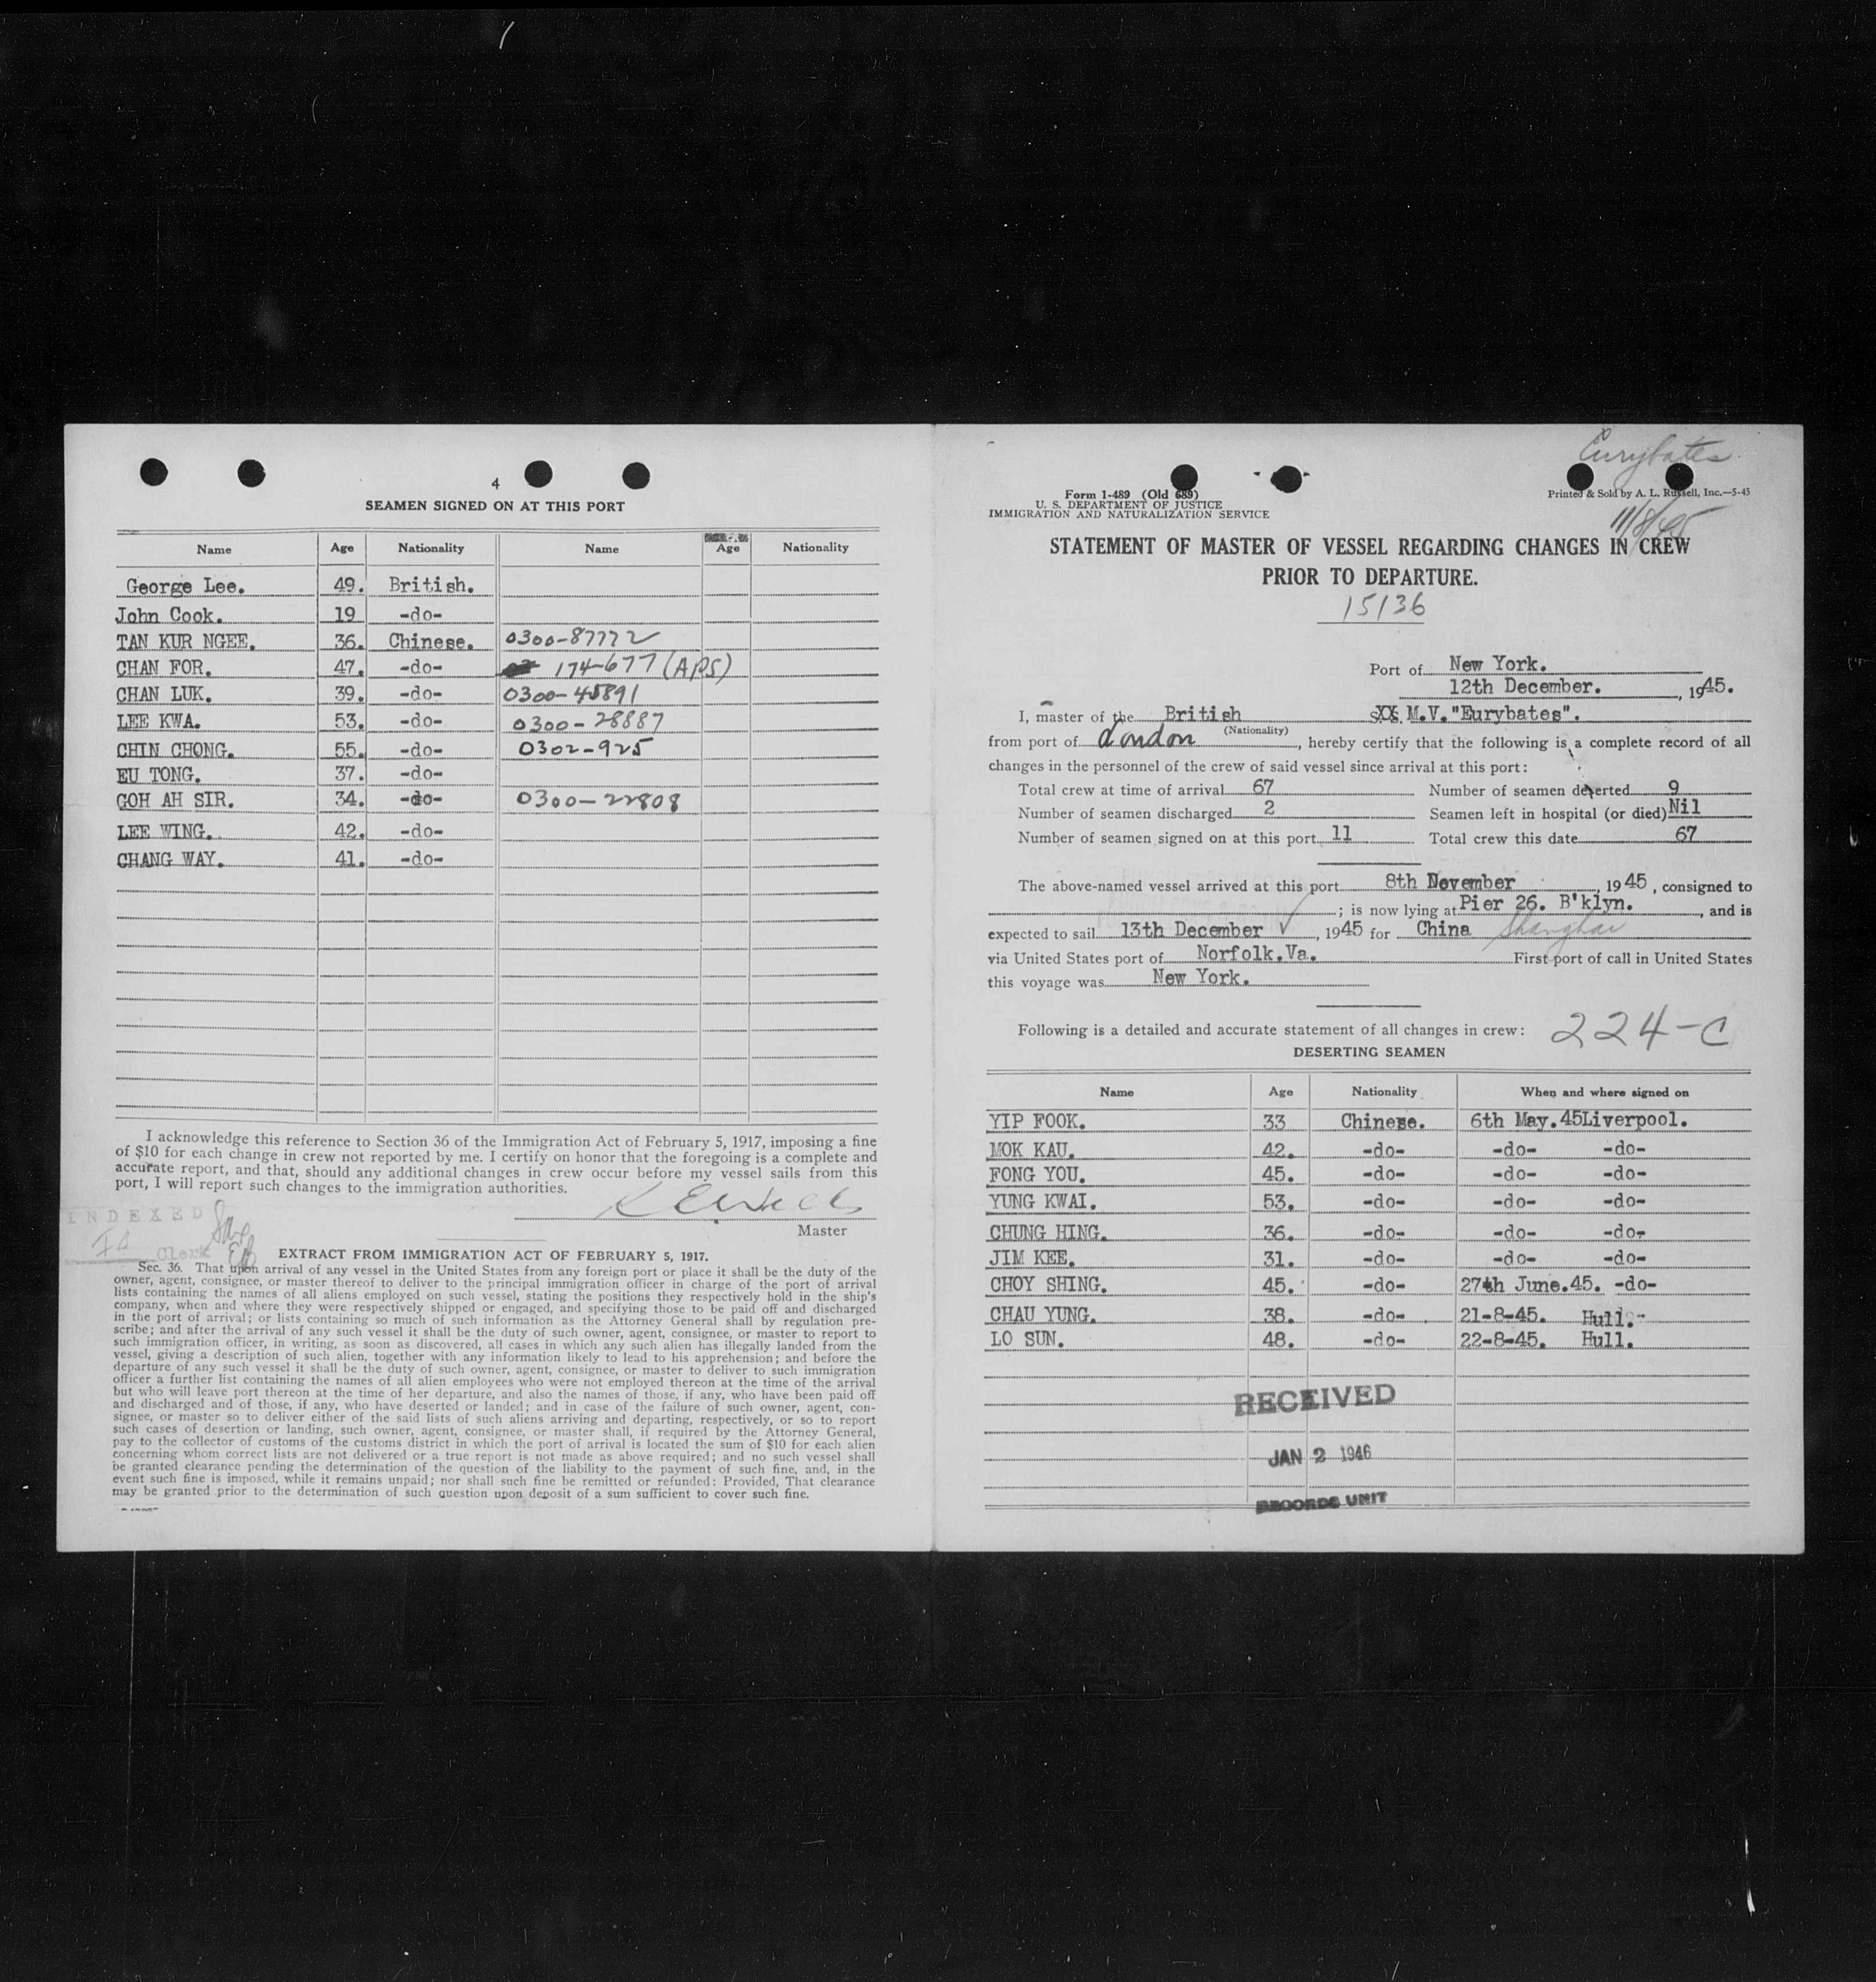 4
SEAMEN SIGNED ON AT THIS PORT
Name Age Nationality Name Age Nationality
George Lee. 49. British.
John Cook. 19 -do-
TAN KUR NGEE. 36. Chinese. 0300-87772
CHAN FOR. 47. -do- 174-677 (APS)
CHAN LUK. 39. -do- 0300-45891
LEE KWA. 53. -do- 0300-28887
CHIN CHONG. 55. -do- 0302-925
EU TONG. 37. -do-
GOH AH SIR. 34. -do- 0300-22808
LEE WING. 42. -do-
CHANG WAY. 41. -do-
I acknowledge this reference to Section 36 of the Immigration Act of February 5, 1917, imposing a fine
of $10 for each change in crew not reported by me. I certify on honor that the foregoing is a complete and
accurate report, and that, should any additional changes in crew occur before my vessel sails from this
port, I will report such changes to the immigration authorities.
Master
INDEXED
Clerk
EXTRACT FROM IMMIGRATION ACT OF FEBRUARY 5, 1917.
Sec. 36. That upon arrival of any vessel in the United States from any foreign port or place it shall be the duty of the
owner, agent, consignee, or master thereof to deliver to the principal immigration officer in charge of the port of arrival
lists containing the names of all aliens employed on such vessel, stating the positions they respectively hold in the ship's
company, when and where they were respectively shipped or engaged, and specifying those to be paid off and discharged
in the port of arrival; or lists containing so much of such information as the Attorney General shall by regulation pre-
scribe; and after the arrival of any such vessel it shall be the duty of such owner, agent, consignee, or master to report to
such immigration officer, in writing, as soon as discovered, all cases in which any such alien has illegally landed from the
vessel, giving a description of such alien, together with any information likely to lead to his apprehension; and before the
departure of any such vessel it shall be the duty of such owner, agent, consignee, or master to deliver to such immigration
officer a further list containing the names of all alien employees who were not employed thereon at the time of the arrival
but who will leave port thereon at the time of her departure, and also the names of those, if any, who have been paid off
and discharged and of those, if any, who have deserted or landed; and in case of the failure of such owner, agent, con-
signee, or master so to deliver either of the said lists of such aliens arriving and departing, respectively, or so to report
such cases of desertion or landing, such owner, agent, consignee, or master shall, if required by the Attorney General,
pay to the collector of customs of the customs district in which the port of arrival is located the sum of $10 for each alien
concerning whom correct lists are not delivered or a true report is not made as above required; and no such vessel shall
be granted clearance pending the determination of the question of the liability to the payment of such fine, and, in the
event such fine is imposed, while it remains unpaid; nor shall such fine be remitted or refunded: Provided, That clearance
may be granted prior to the determination of such question upon deposit of a sum sufficient to cover such fine.
Eurybates
Form 1-489 (Old 689)
U. S. DEPARTMENT OF JUSTICE
IMMIGRATION AND NATURALIZATION SERVICE
Printed & Sold by A. L. Russell, Inc.—5-45
11/8/45
STATEMENT OF MASTER OF VESSEL REGARDING CHANGES IN CREW
PRIOR TO DEPARTURE.
15136
Port of New York.
12th December. , 1945.
I, master of the British M.V."Eurybates".
(Nationality)
from port of London , hereby certify that the following is a complete record of all
changes in the personnel of the crew of said vessel since arrival at this port:
Total crew at time of arrival 67 Number of seamen deserted 9
Number of seamen discharged 2 Seamen left in hospital (or died) Nil
Number of seamen signed on at this port 11 Total crew this date 67
The above-named vessel arrived at this port 8th November , 1945 , consigned to
; is now lying at Pier 26. B'klyn. , and is
expected to sail 13th December , 1945 for China Shanghai
via United States port of Norfolk.Va. First port of call in United States
this voyage was New York.
Following is a detailed and accurate statement of all changes in crew: 224-C
DESERTING SEAMEN
Name Age Nationality When and where signed on
YIP FOOK. 33 Chinese. 6th May.45 Liverpool.
MOK KAU. 42. -do- -do- -do-
FONG YOU. 45. -do- -do- -do-
YUNG KWAI. 53. -do- -do- -do-
CHUNG HING. 36. -do- -do- -do-
JIM KEE. 31. -do- -do- -do-
CHOY SHING. 45. -do- 27th June.45. -do-
CHAU YUNG. 38. -do- 21-8-45. Hull.-
LO SUN. 48. -do- 22-8-45. Hull.
RECEIVED
JAN 2 1946
RECORDS UNIT